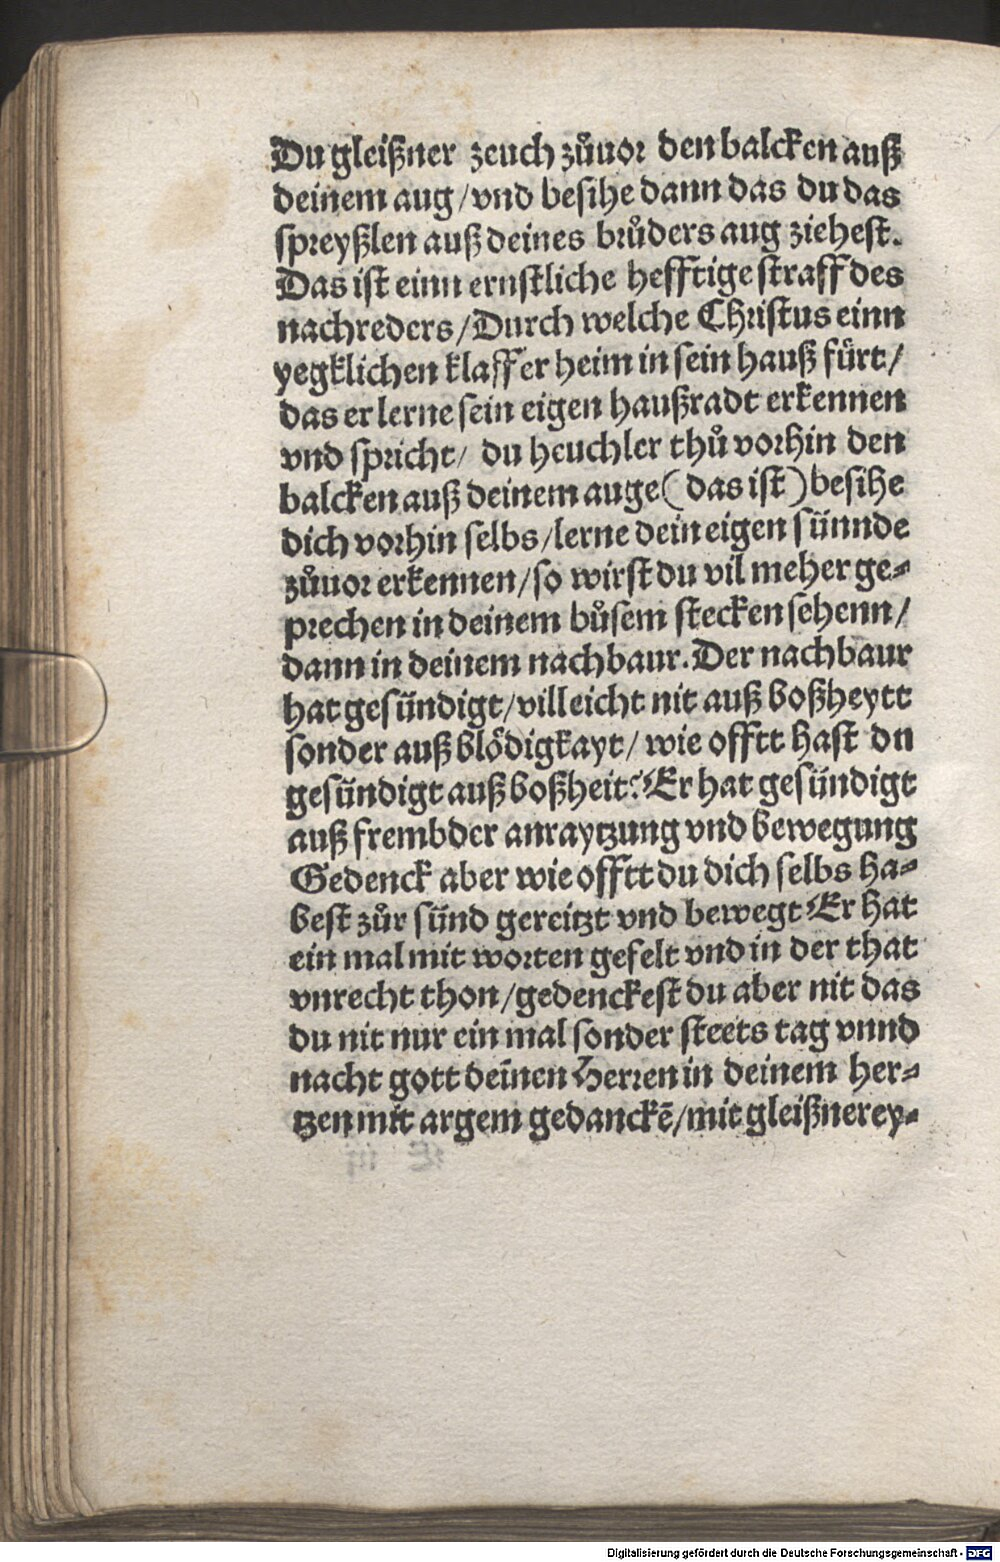 Du gleißner zeuch zůuor den balcken auß
deinem aug/vnd besihe dann das du das
spreyßlen auß deines brůders aug ziehest.
Das ist einn ernstliche hefftige straff des
nachreders/Durch welche Christus einn
yegklichen klaffer heim in sein hauß fürt/
das er lerne sein eigen haußradt erkennen
vnd spricht/ du heuchler thů vorhin den
balcken auß deinem auge(das ist)besihe
dich vorhin selbs/lerne dein eigen sünnde
zůuor erkennen/so wirst du vil meher ge-
prechen in deinem bůsem stecken sehenn/
dann in deinem nachbaur. Der nachbaur
hat gesündigt/villeicht nit auß boßheytt
sonder auß blödigkayt/ wie offtt hast dn
gesündigt auß boßheit? Er hat gesündigt
auß frembder anraytzung vnd bewegung
Gedenck aber wie offtt du dich selbs ha-
best zůr sünd gereitzt vnd bewegt Er hat
ein mal mit worten gefelt vnd in der that
vnrecht thon/gedenckest du aber nit das
du nit nur ein mal sonder steets tag vnnd
nacht gott deīnen Herren in deinem her-
tzen mit argem gedanckē/mit gleißnerey-
Digitalisierung gefördert durch die Deutsche Forschungsgemeinschaft - DFG